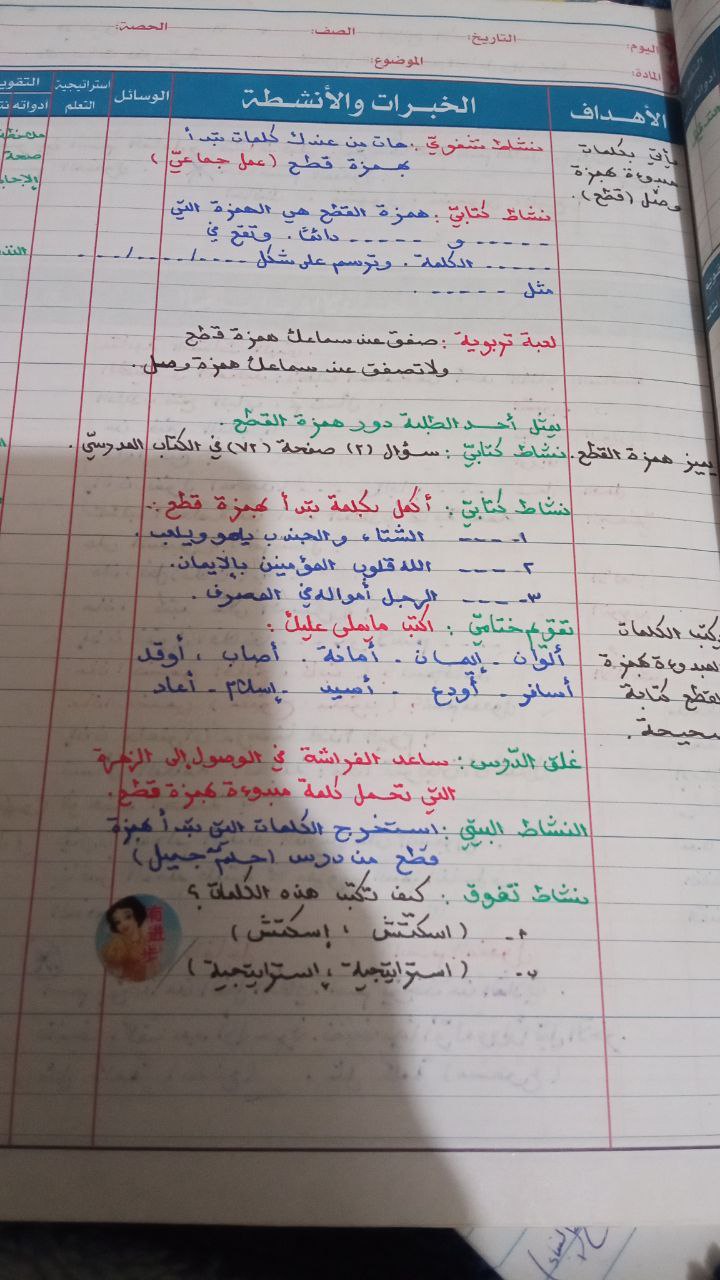 اليوم: التاريخ: الصف: الحصة:
المادة: الموضوع:
الأهداف الخبرات والأنشطة الوسائل استراتيجية التعلم التقوي
ادواته
يأتي بكلمات
مبدوءة بهمزة
وصل (قطع).
نشاط شفوي: هات من عندك كلمات تبدأ
بهمزة قطع (عمل جماعي)
صفحة
نشاط كتابي: همزة القطع هي الهمزة التي
----- و ----- دائمًا. وتقع في
----- الكلمة. وترسم على شكل ----/----/----
مثل ----- .
لعبة تربوية: صفق عند سماعك همزة قطع
ولا تصفق عند سماعك همزة وصل.
يمثل أحد الطلبة دور همزة القطع.
يميز همزة القطع.
نشاط كتابيّ: سؤال (٢) صفحة (٧٢) في الكتاب المدرسيّ.
نشاط كتابيّ: أكمل بكلمة تبدأ بهمزة قطع:
١- ---- الشتاء والجندب يلهو ويلعب.
٢- ---- الله قلوب المؤمنين بالإيمان.
٣- ---- الرجل أمواله في المصرف.
يكتب الكلمات
المبدوءة بهمزة
القطع كتابة
صحيحة.
تقويم ختاميّ: اكتب ما يملى عليك:
ألوان - إيمان - أمانة. أصاب، أوقد
أسافر - أودع - أصيد - إسلام - أعاد
غلق الدّرس: ساعد الفراشة في الوصول إلى الزهرة
التي تحمل كلمة مبدوءة بهمزة قطع.
النشاط البيتيّ: استخرج الكلمات التي تبدأ بهمزة
قطع من درس (حلم جميل)
نشاط تفوق: كيف تكتب هذه الكلمات؟
أ- (اسكتش، إسكتش)
ب- (استراتيجية، إستراتيجية)
有进步